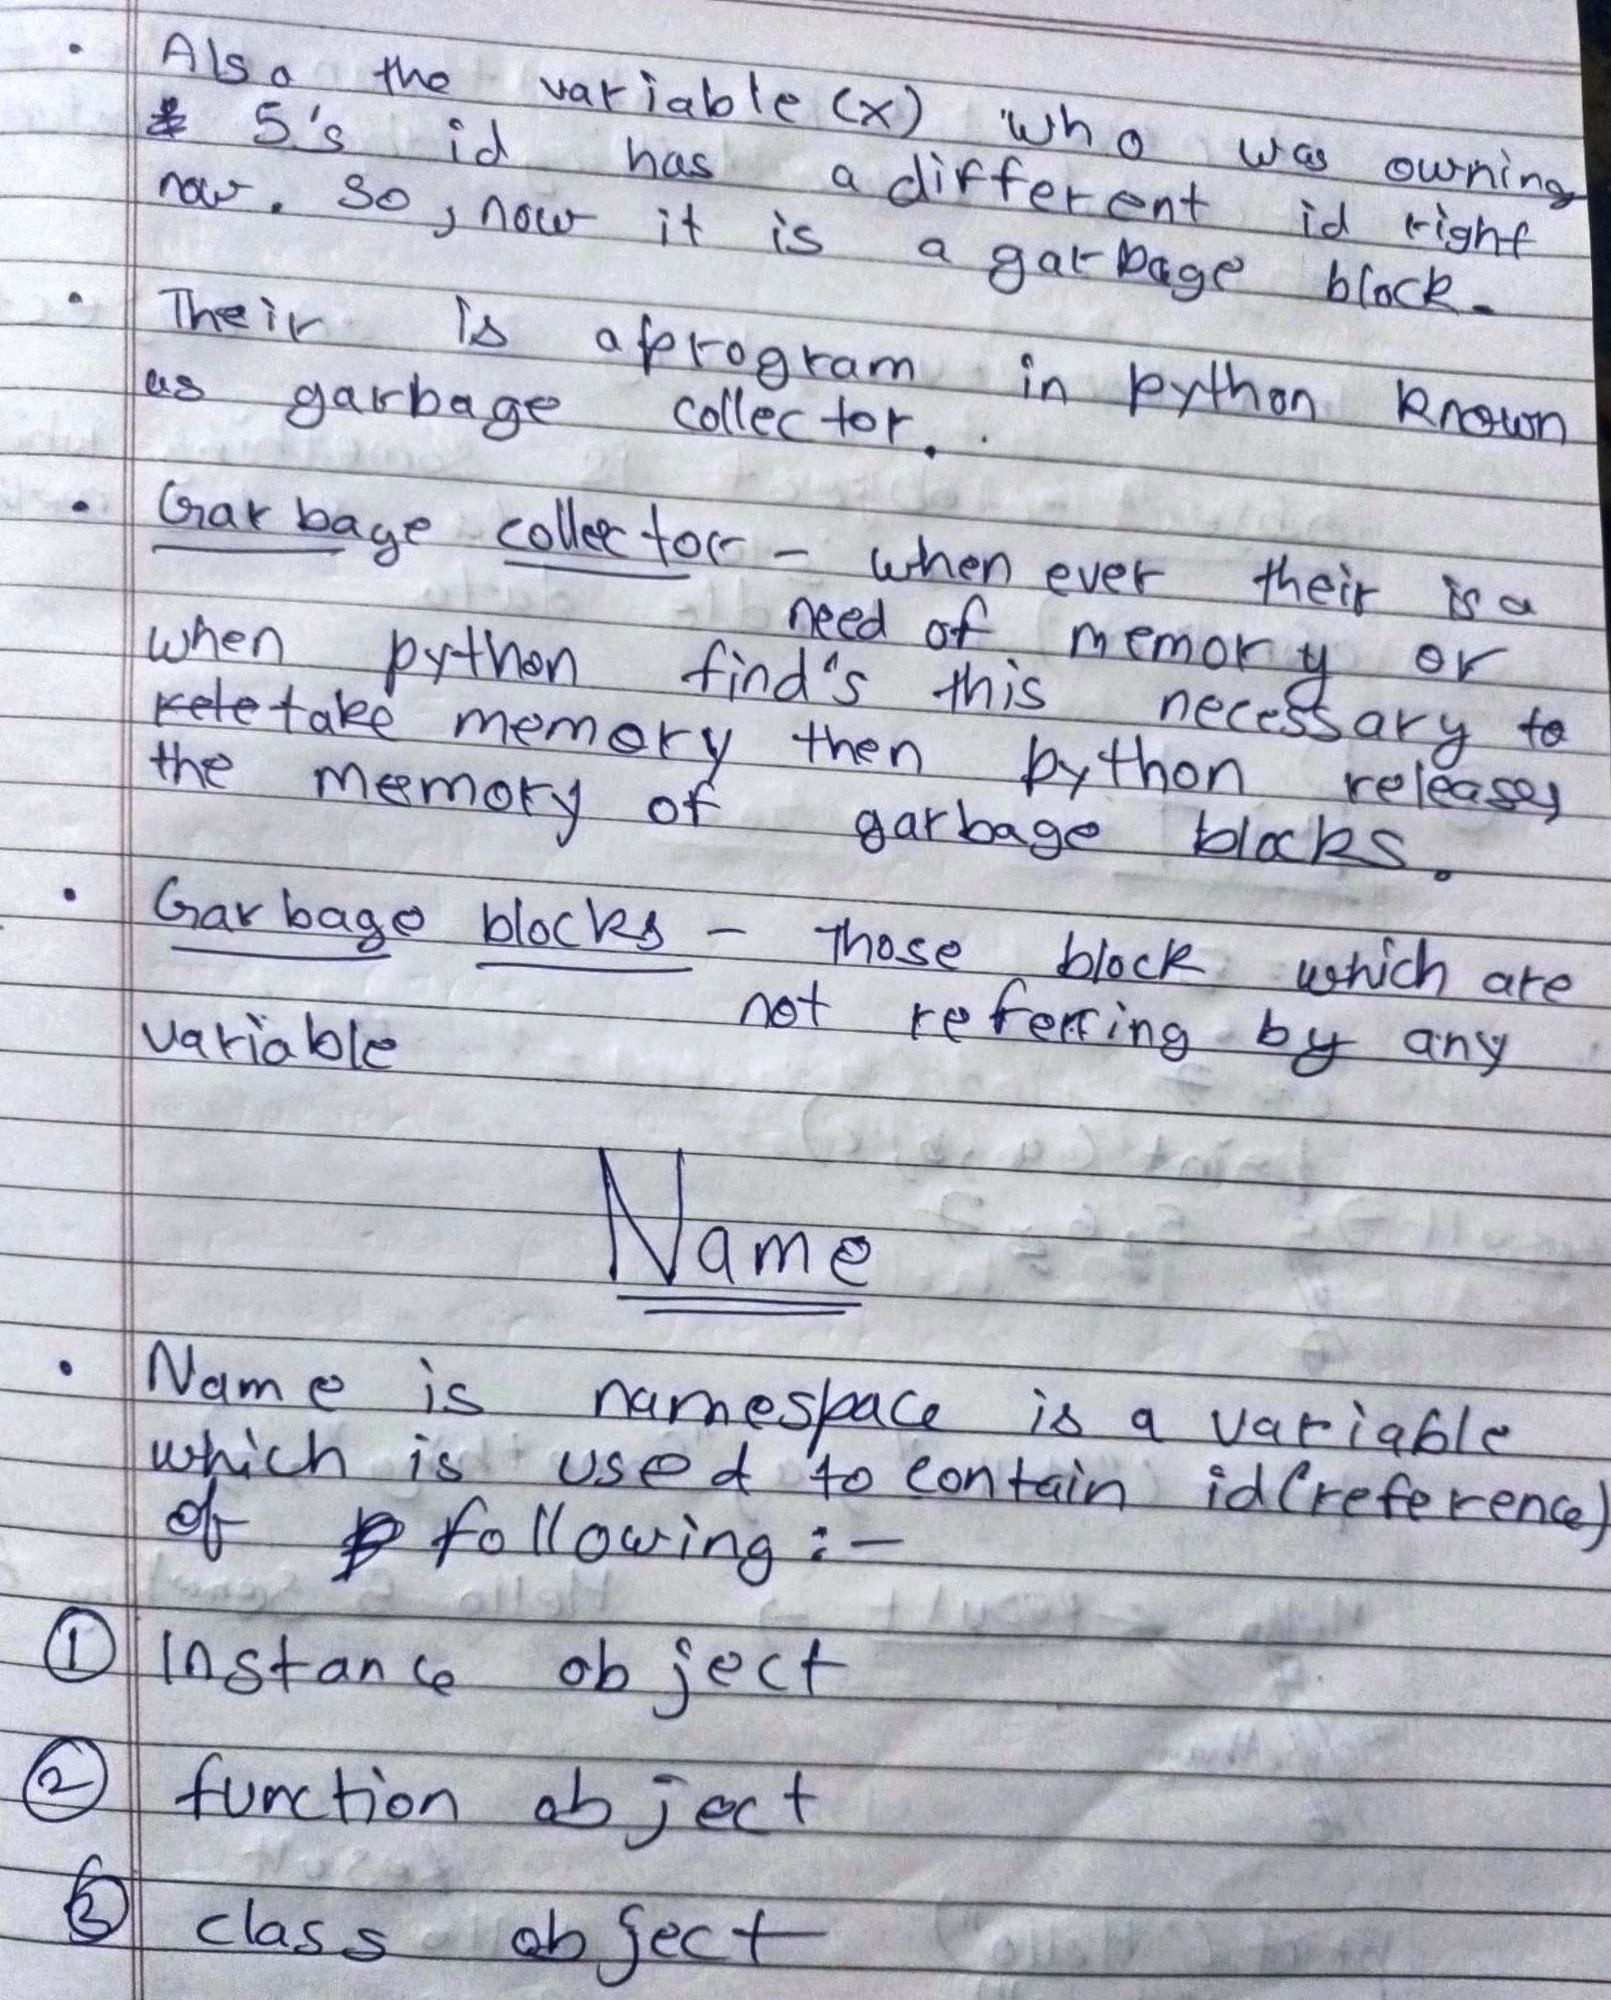 • Also the variable (x) who was owning
5's id has a different id right
now. So, now it is a garbage block.
• Their is a program in python known
as garbage collector.
• Garbage collector - when ever their is a
need of memory or
when python find's this necessary to
take memory then python releases
the memory of garbage blocks.
• Garbage blocks - Those block which are
not referring by any
variable
Name
• Name is namespace is a variable
which is used to contain id (reference)
of following :-
① Instance object
② function object
③ class object